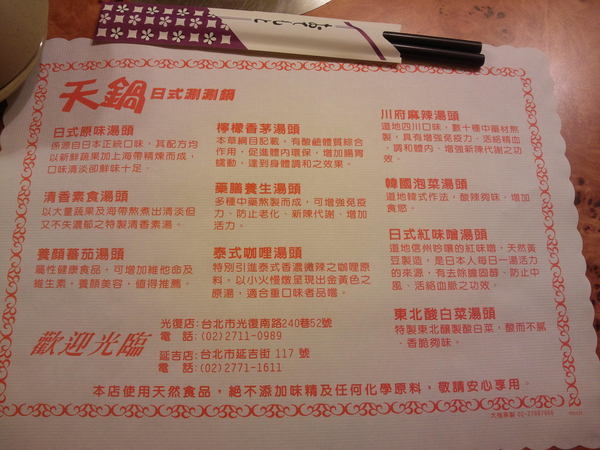 天鍋 日式涮涮鍋
日式原味湯頭
係源自日本正統口味，其配方均
以新鮮蔬果加上海帶精煉而成，
口味清淡卻鮮味十足。
清香素食湯頭
以大量蔬果及海帶熬煮出清淡但
又不失濃郁之特製清香素湯。
養顏蕃茄湯頭
屬性健康食品，可增加維他命及
維生素，養顏美容，值得推薦。
檸檬香茅湯頭
本草綱目記載，有酸鹼體質綜合
作用，促進體內環保，增加腸胃
蠕動，達到身體調和之效果。
藥膳養生湯頭
多種中藥熬製而成，可增強免疫
力、防止老化、新陳代謝、增加
活力。
泰式咖哩湯頭
特別引進泰式香濃微辣之咖哩原
料，以小火慢燉呈現出金黃色之
原湯，適合重口味者品嚐。
川府麻辣湯頭
道地四川口味，數十種中藥材熬
製，具有增強免疫力、活絡精血
、調和體內、增強新陳代謝之功
效。
韓國泡菜湯頭
道地韓式作法，酸辣夠味，增加
食慾。
日式紅味噌湯頭
道地信州吟釀的紅味噌，天然黃
豆製造，是日本人每日一湯活力
的來源，有去除膽固醇、防止中
風、活絡血脈之功效。
東北酸白菜湯頭
特製東北釀製酸白菜，酸而不膩
、香脆夠味。
歡迎光臨
光復店：台北市光復南路240巷52號
電　話：(02)2711-0989
延吉店：台北市延吉街 117 號
電　話：(02)2771-1611
本店使用天然食品，絕不添加味精及任何化學原料，敬請安心享用。